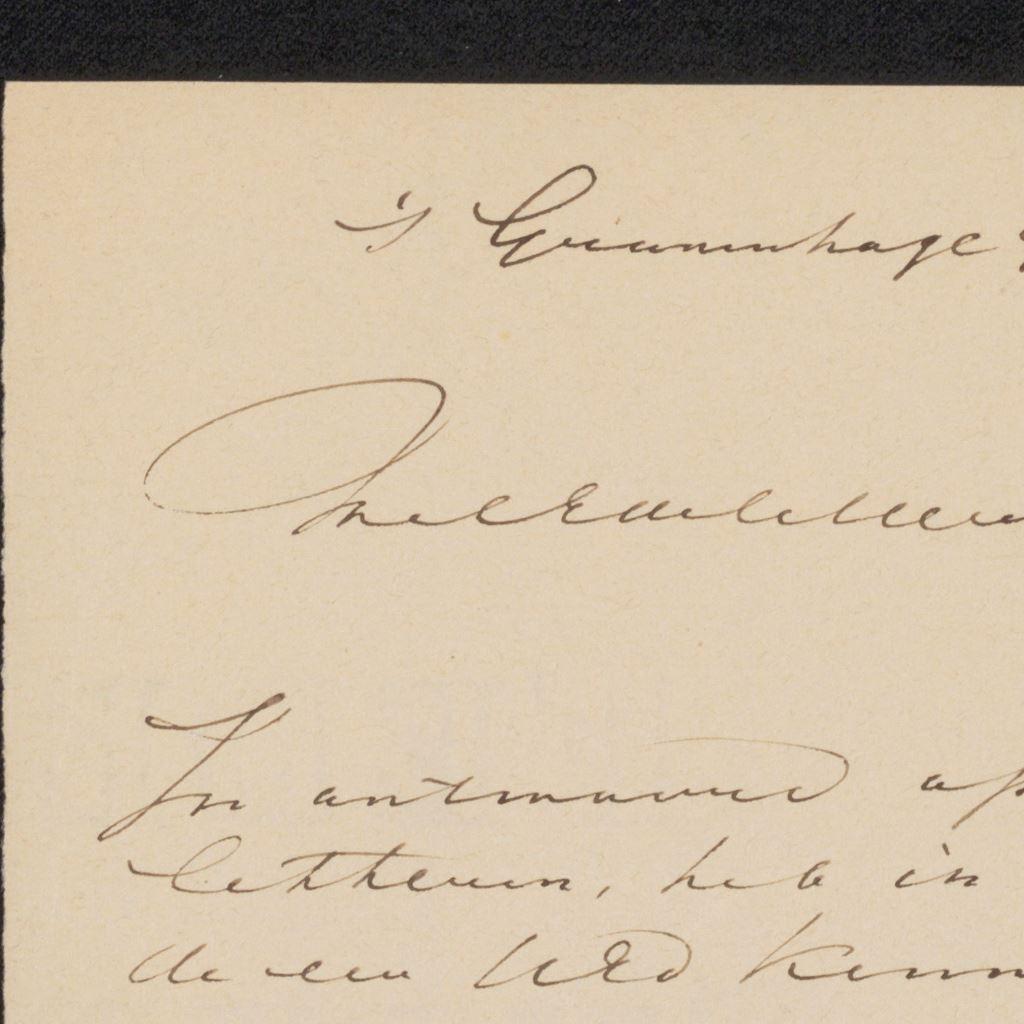 's Gravenhage
WelEdele Heer
In antwoord op
letteren, heb ik
de eer UEd kenn